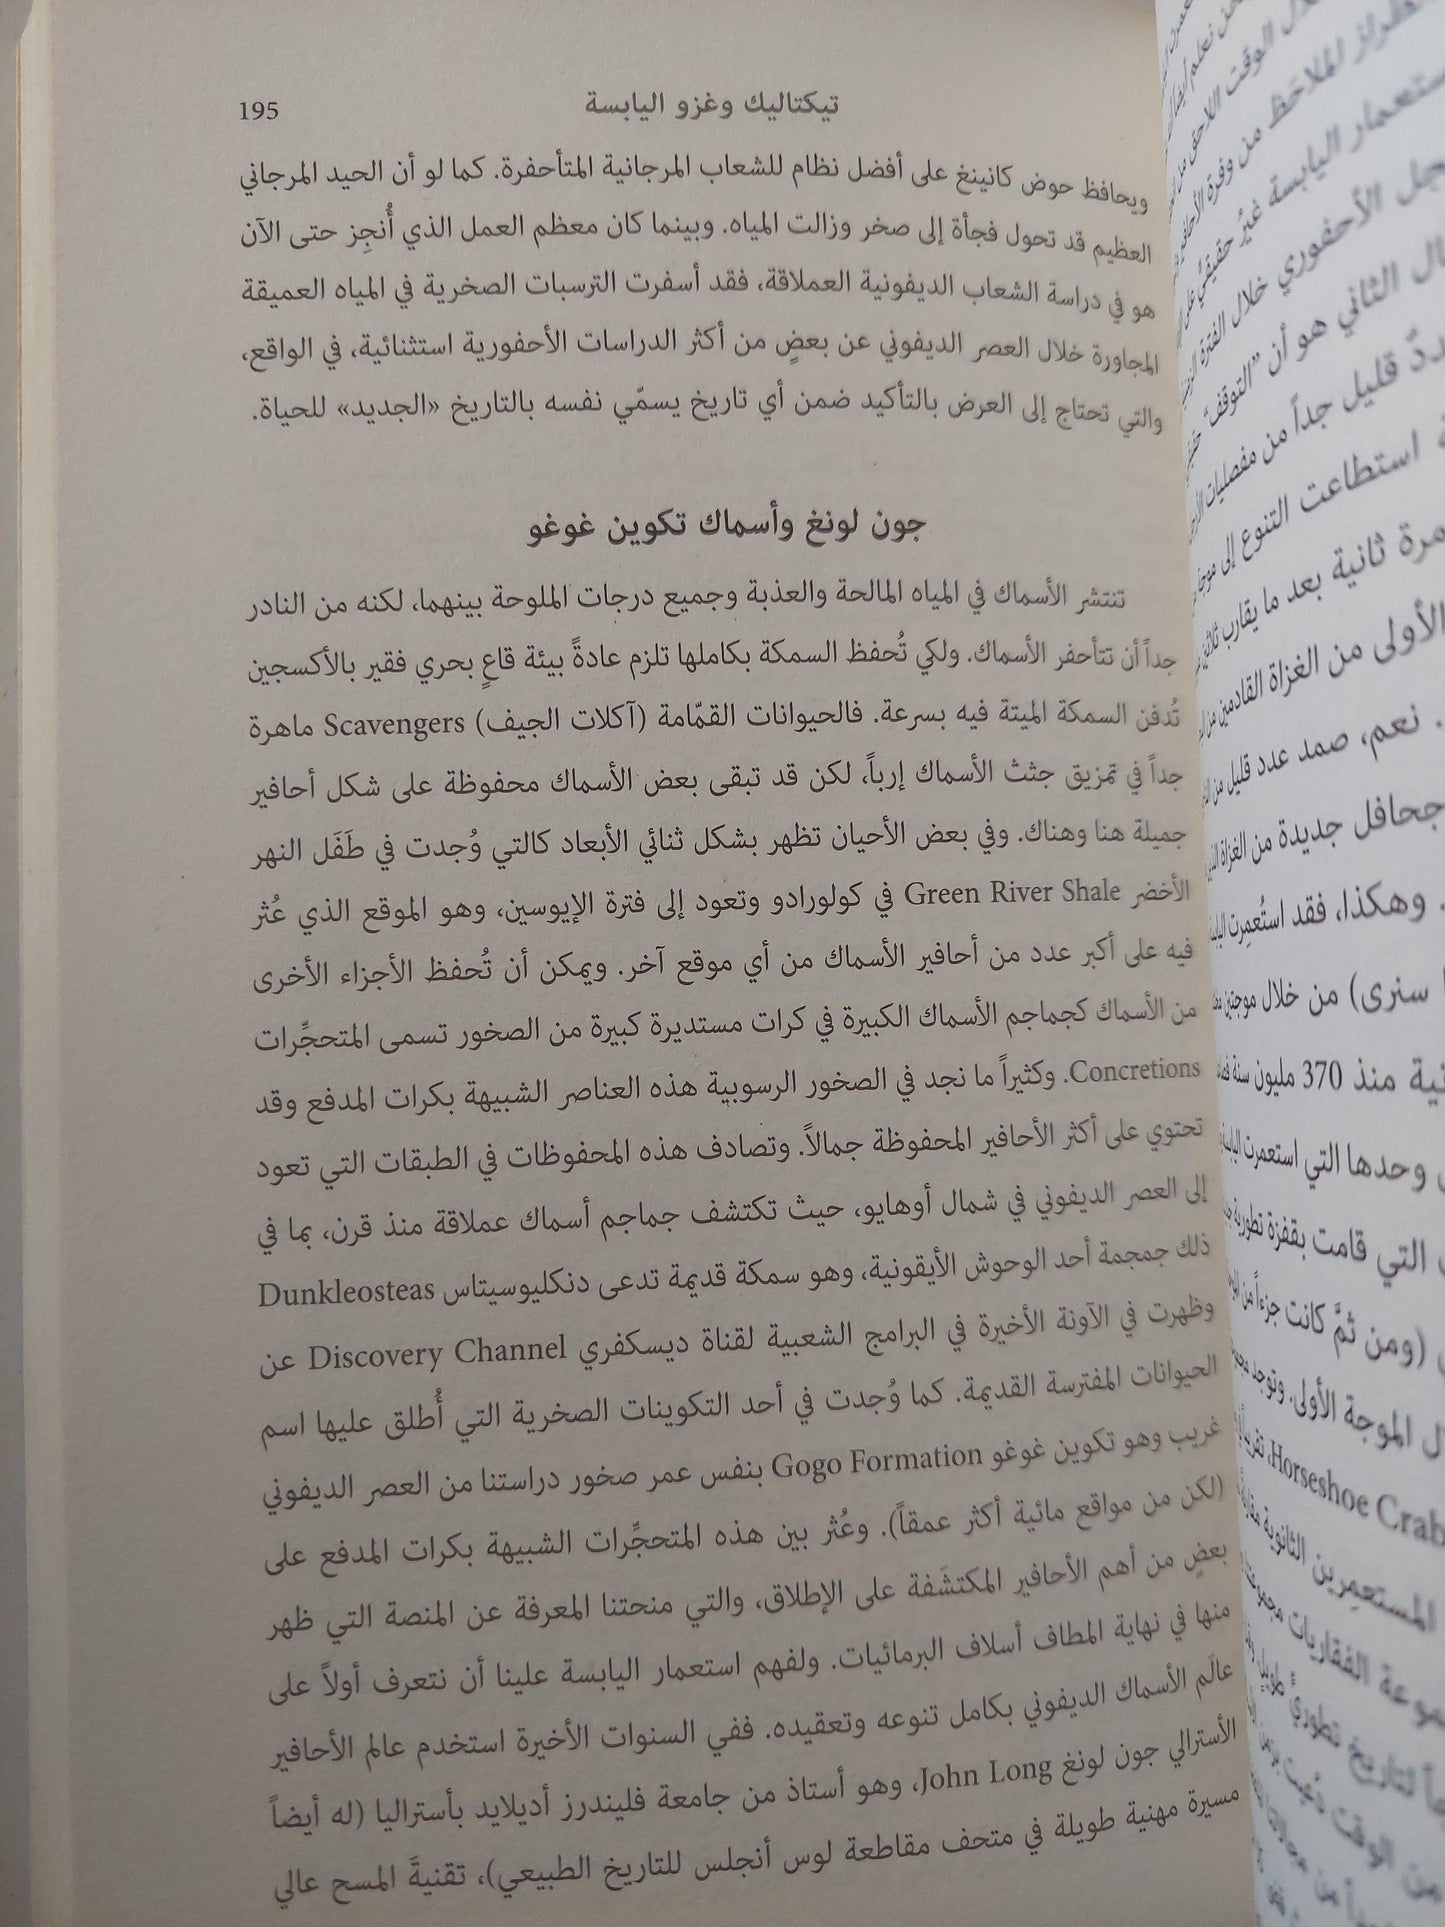 تيكتاليك وغزو اليابسة 195
ويحافظ حوض كانينغ على أفضل نظام للشعاب المرجانية المتأحفرة. كما لو أن الحيد المرجاني
العظيم قد تحول فجأة إلى صخر وزالت المياه. وبينما كان معظم العمل الذي أُنجِز حتى الآن
هو في دراسة الشعاب الديفونية العملاقة، فقد أسفرت الترسبات الصخرية في المياه العميقة
المجاورة خلال العصر الديفوني عن بعضٍ من أكثر الدراسات الأحفورية استثنائية، في الواقع،
والتي تحتاج إلى العرض بالتأكيد ضمن أي تاريخ يسمّي نفسه بالتاريخ «الجديد» للحياة.
جون لونغ وأسماك تكوين غوغو
تنتشر الأسماك في المياه المالحة والعذبة وجميع درجات الملوحة بينهما، لكنه من النادر
جداً أن تتأحفر الأسماك. ولكي تُحفظ السمكة بكاملها تلزم عادةً بيئة قاعٍ بحري فقير بالأكسجين
تُدفن السمكة الميتة فيه بسرعة. فالحيوانات القمّامة (آكلات الجيف) Scavengers ماهرة
جداً في تمزيق جثث الأسماك إرباً، لكن قد تبقى بعض الأسماك محفوظة على شكل أحافير
جميلة هنا وهناك. وفي بعض الأحيان تظهر بشكل ثنائي الأبعاد كالتي وُجدت في طَفَل النهر
الأخضر Green River Shale في كولورادو وتعود إلى فترة الإيوسين، وهو الموقع الذي عُثر
فيه على أكبر عدد من أحافير الأسماك من أي موقع آخر. ويمكن أن تُحفظ الأجزاء الأخرى
من الأسماك كجماجم الأسماك الكبيرة في كرات مستديرة كبيرة من الصخور تسمى المتحجِّرات
Concretions. وكثيراً ما نجد في الصخور الرسوبية هذه العناصر الشبيهة بكرات المدفع وقد
تحتوي على أكثر الأحافير المحفوظة جمالاً. وتصادف هذه المحفوظات في الطبقات التي تعود
إلى العصر الديفوني في شمال أوهايو، حيث تكتشف جماجم أسماك عملاقة منذ قرن، بما في
ذلك جمجمة أحد الوحوش الأيقونية، وهو سمكة قديمة تدعى دنكليوسيتاس Dunkleosteas
وظهرت في الآونة الأخيرة في البرامج الشعبية لقناة ديسكفري Discovery Channel عن
الحيوانات المفترسة القديمة. كما وُجدت في أحد التكوينات الصخرية التي أُطلق عليها اسم
غريب وهو تكوين غوغو Gogo Formation بنفس عمر صخور دراستنا من العصر الديفوني
(لكن من مواقع مائية أكثر عمقاً). وعُثر بين هذه المتحجِّرات الشبيهة بكرات المدفع على
بعضٍ من أهم الأحافير المكتشَفة على الإطلاق، والتي منحتنا المعرفة عن المنصة التي ظهر
منها في نهاية المطاف أسلاف البرمائيات. ولفهم استعمار اليابسة علينا أن نتعرف أولاً على
عالَم الأسماك الديفوني بكامل تنوعه وتعقيده. ففي السنوات الأخيرة استخدم عالم الأحافير
الأسترالي جون لونغ John Long، وهو أستاذ من جامعة فليندرز أديلايد بأستراليا (له أيضاً
مسيرة مهنية طويلة في متحف مقاطعة لوس أنجلس للتاريخ الطبيعي)، تقنيةَ المسح عالي
خلال الوقت اللاحق من
الطراز الملاحَظ من وفرة
استعمار اليابسة غيرُ حقيقيٍّ
الأحفوري خلال الفترة
الثاني هو أن "التوقف"
قليل جداً من مفصليات
استطاعت التنوع إلى
مرة ثانية بعد ما يقارب
الأولى من الغزاة القادمين من
. نعم، صمد عدد قليل من
جحافل جديدة من الغزاة
. وهكذا، فقد استُعمِرت
سنرى) من خلال موجتين
منذ 370 مليون سنة
وحدها التي استعمرت
التي قامت بقفزة تطورية
(ومن ثمَّ كانت جزءاً من
الموجة الأولى. وتوجد
Horseshoe Crab
المستعمِرين الثانوية
الفقاريات
لتاريخ تطوريٍّ
من الوقت